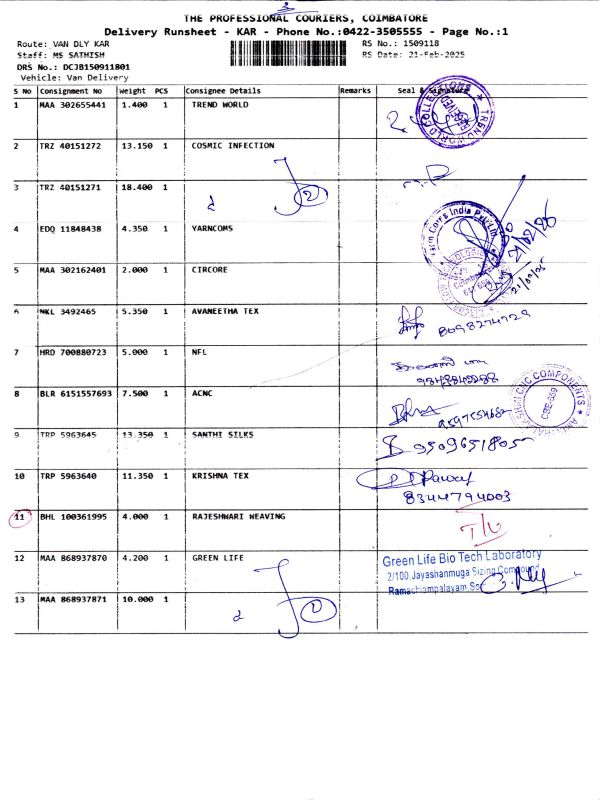 THE PROFESSIONAL COURIERS, COIMBATORE
Delivery Runsheet - KAR - Phone No.:0422-3505555 - Page No.:1
Route: VAN DLY KAR
RS No.: 1509118
Staff: MS SATHISH
RS Date: 21-Feb-2025
DRS No.: DCJB150911801
Vehicle: Van Delivery
S No Consignment No Weight PCS Consignee Details Remarks Seal & Signature
1 MAA 302655441 1.400 1 TREND WORLD
2 TRZ 40151272 13.150 1 COSMIC INFECTION
3 TRZ 40151271 18.400 1 2
4 EDQ 11848438 4.350 1 YARNCOMS
5 MAA 302162401 2.000 1 CIRCORE
21/02/25
6 NKL 3492465 5.350 1 AVANEETHA TEX
8098274729
7 HRD 700880723 5.000 1 NFL
8 BLR 6151557693 7.500 1 ACNC
CNC COMPONENTS
9 TRP 5963645 13.350 1 SANTHI SILKS
9509651805
10 TRP 5963640 11.350 1 KRISHNA TEX
8344794003
11 BHL 100361995 4.000 1 RAJESHWARI WEAVING
12 MAA 868937870 4.200 1 GREEN LIFE
Green Life Bio Tech Laboratory
2/100, Jayashanmuga Sizing Compound
Ramachiampalayam,
13 MAA 868937871 10.000 1 2